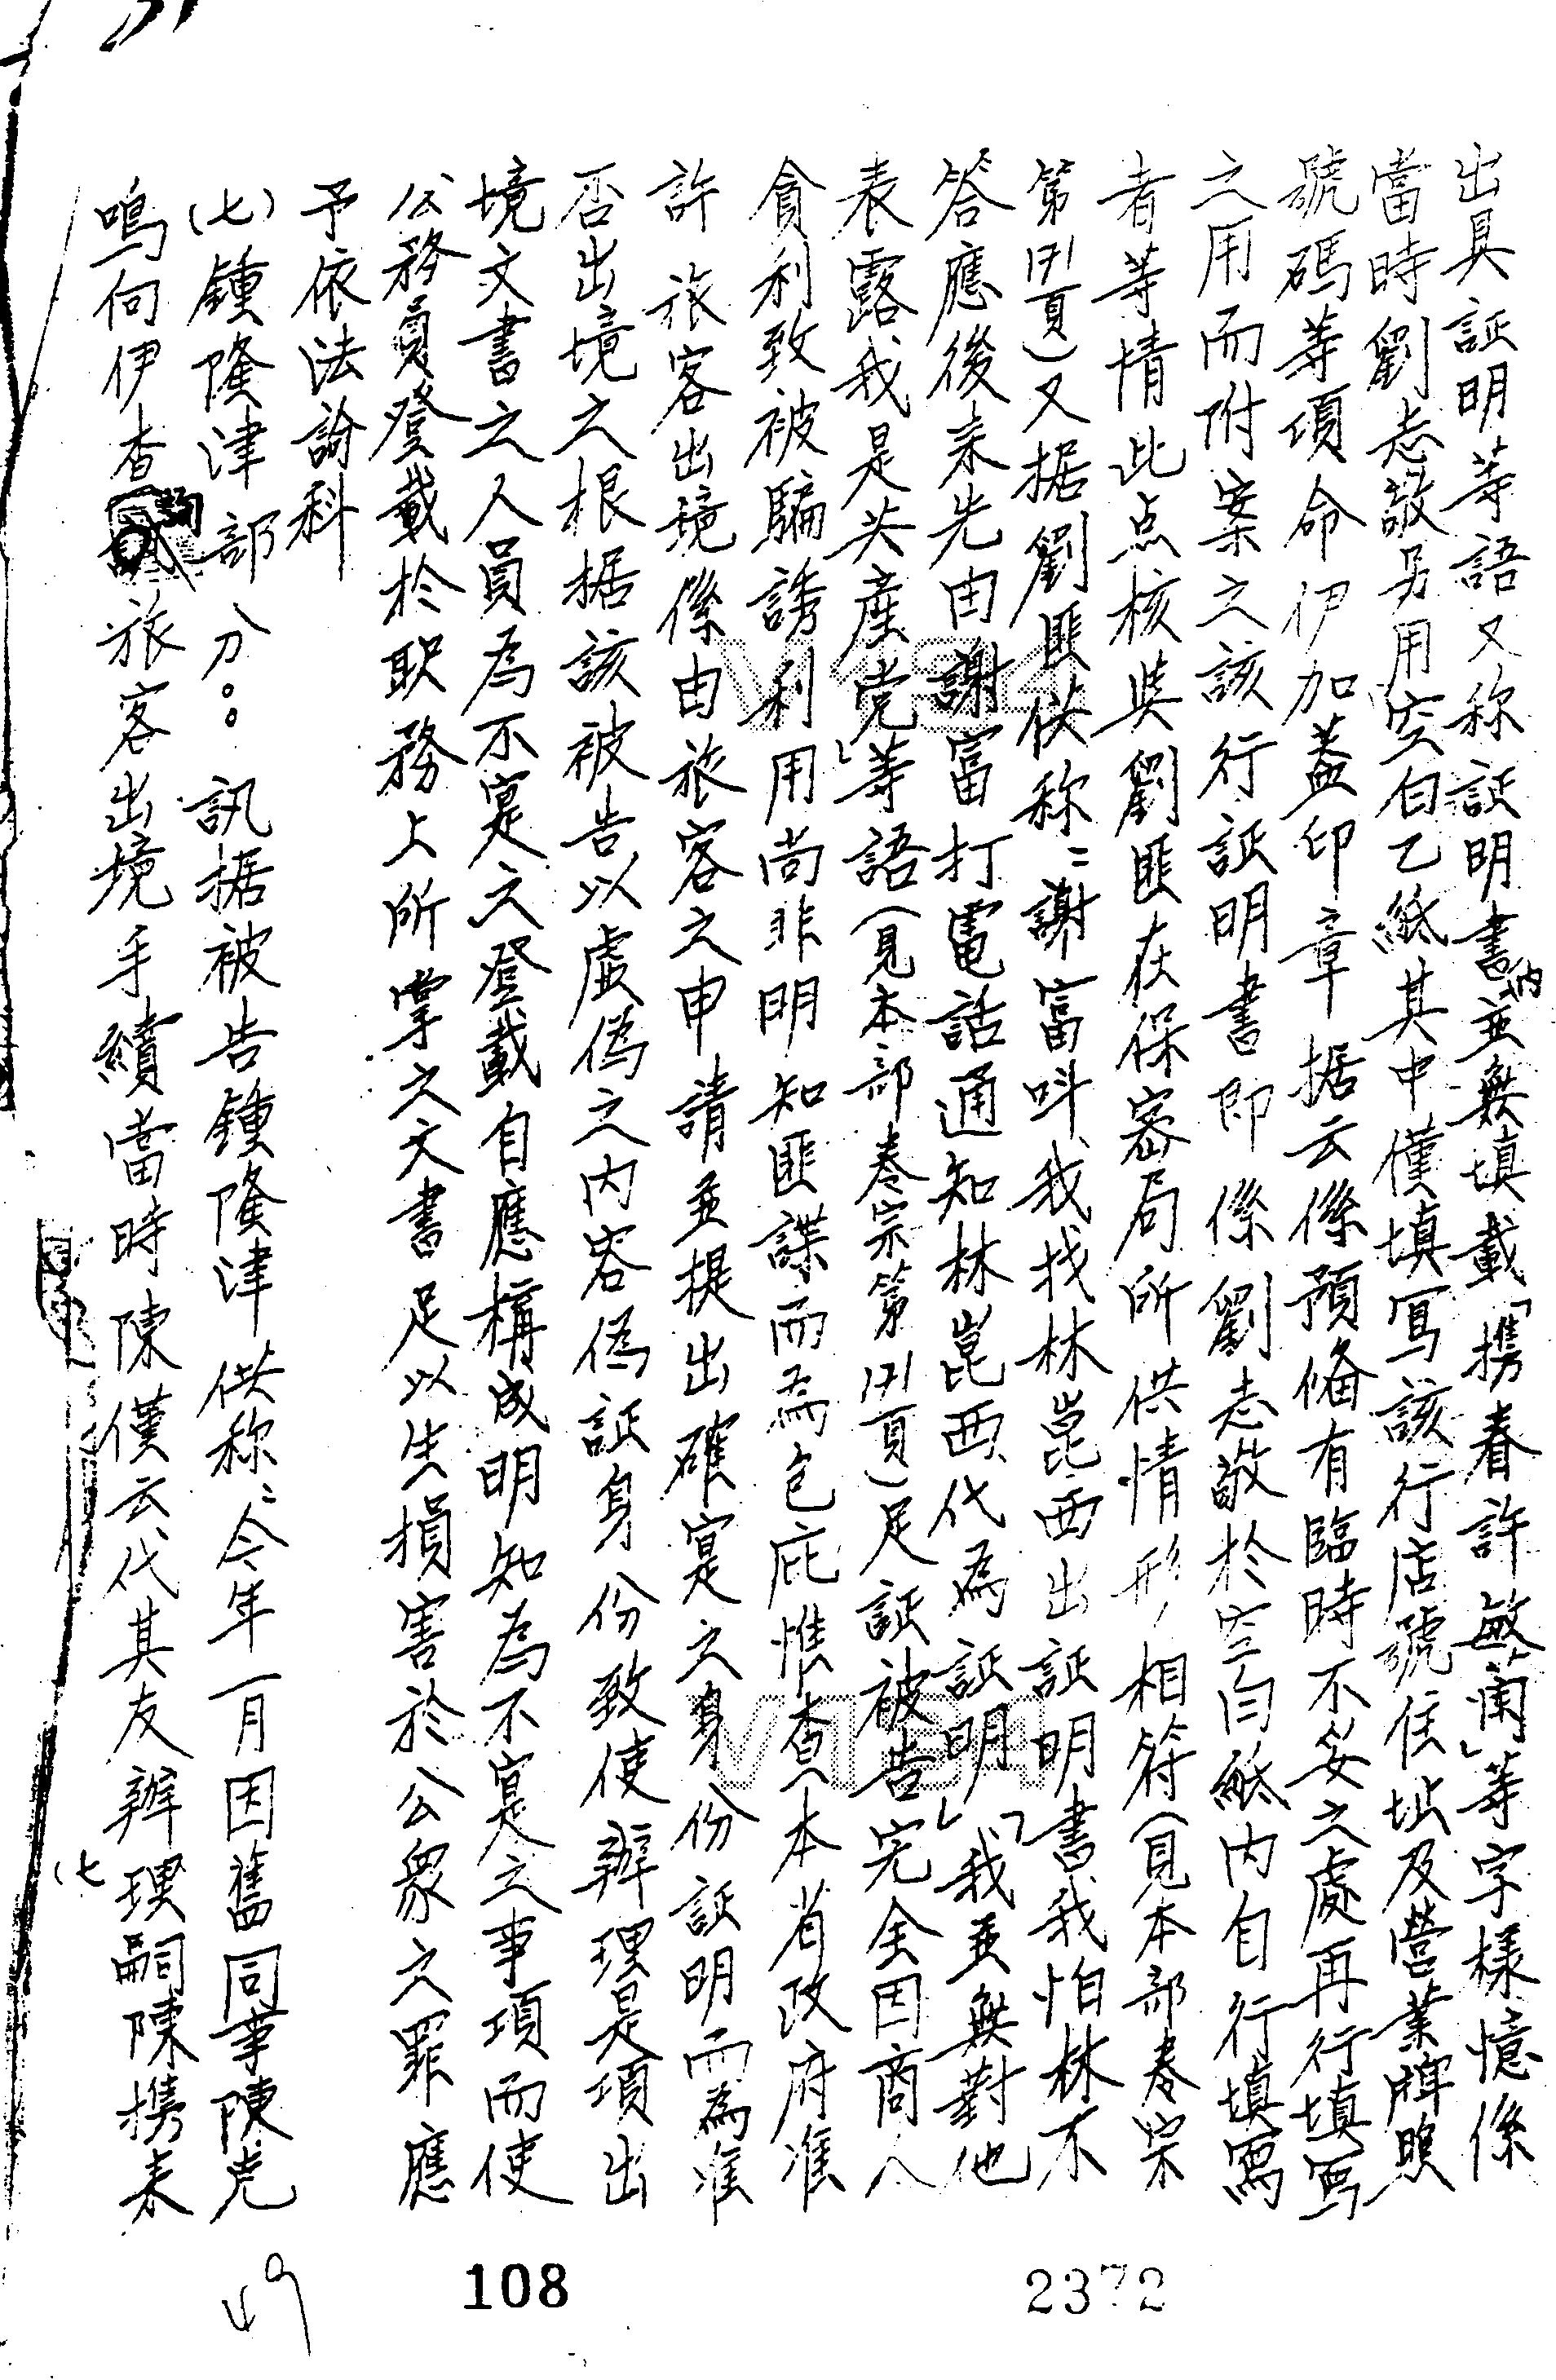 出具証明等語又称証明書內並無填載「携春許敏蘭」等字樣憶係
當時劉志敬另用空白乙紙其中僅填寫該行店號住址及營業牌照
號碼等項命伊加蓋印章据云係預俻有臨時不妥之處再行填写
之用而附案之該行証明書即係劉志敬於空白紙內自行填寫
者等情此点核與劉匪在保密局所供情形相符（見本部卷宗
第 頁）又据劉匪供称：謝富叫我找林崑西出証明書我怕林不
答應後來先由謝富打電話通知林崑西代為証明」「我並無對他
表露我是共產党」等語（見本部卷宗第 頁）足証被告完全因商人
貪利致被騙誘利用尚非明知匪諜而為包庇惟查本省政府准
許旅客出境係由旅客之申請並提出確寔之身份証明而為准
否出境之根据該被告以虛偽之內容偽証身份致使辦理是項出
境文書之人員為不寔之登載自應構成明知為不寔之事項而使
公務員登載於职務上所掌之文書足以生損害於公眾之罪應
予依法論科
（七）鍾隆津部分：訊据被告鍾隆津供称：今年一月因舊同事陳克
鳴向伊查詢旅客出境手續當時陳僅云代其友辦理嗣陳携來
（七
49
108
2372
V134
V134